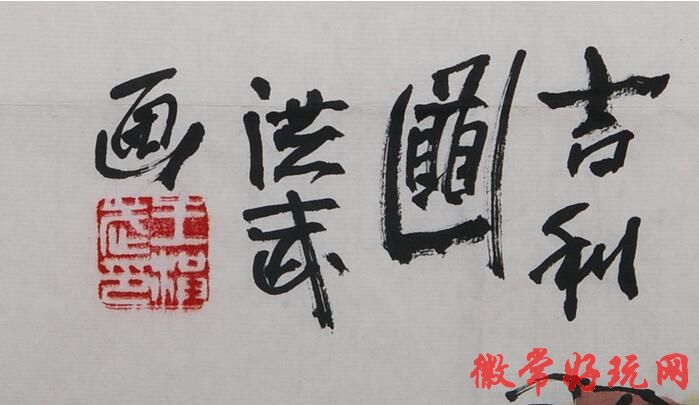 吉利
圖
洪武
画
徽常好玩网